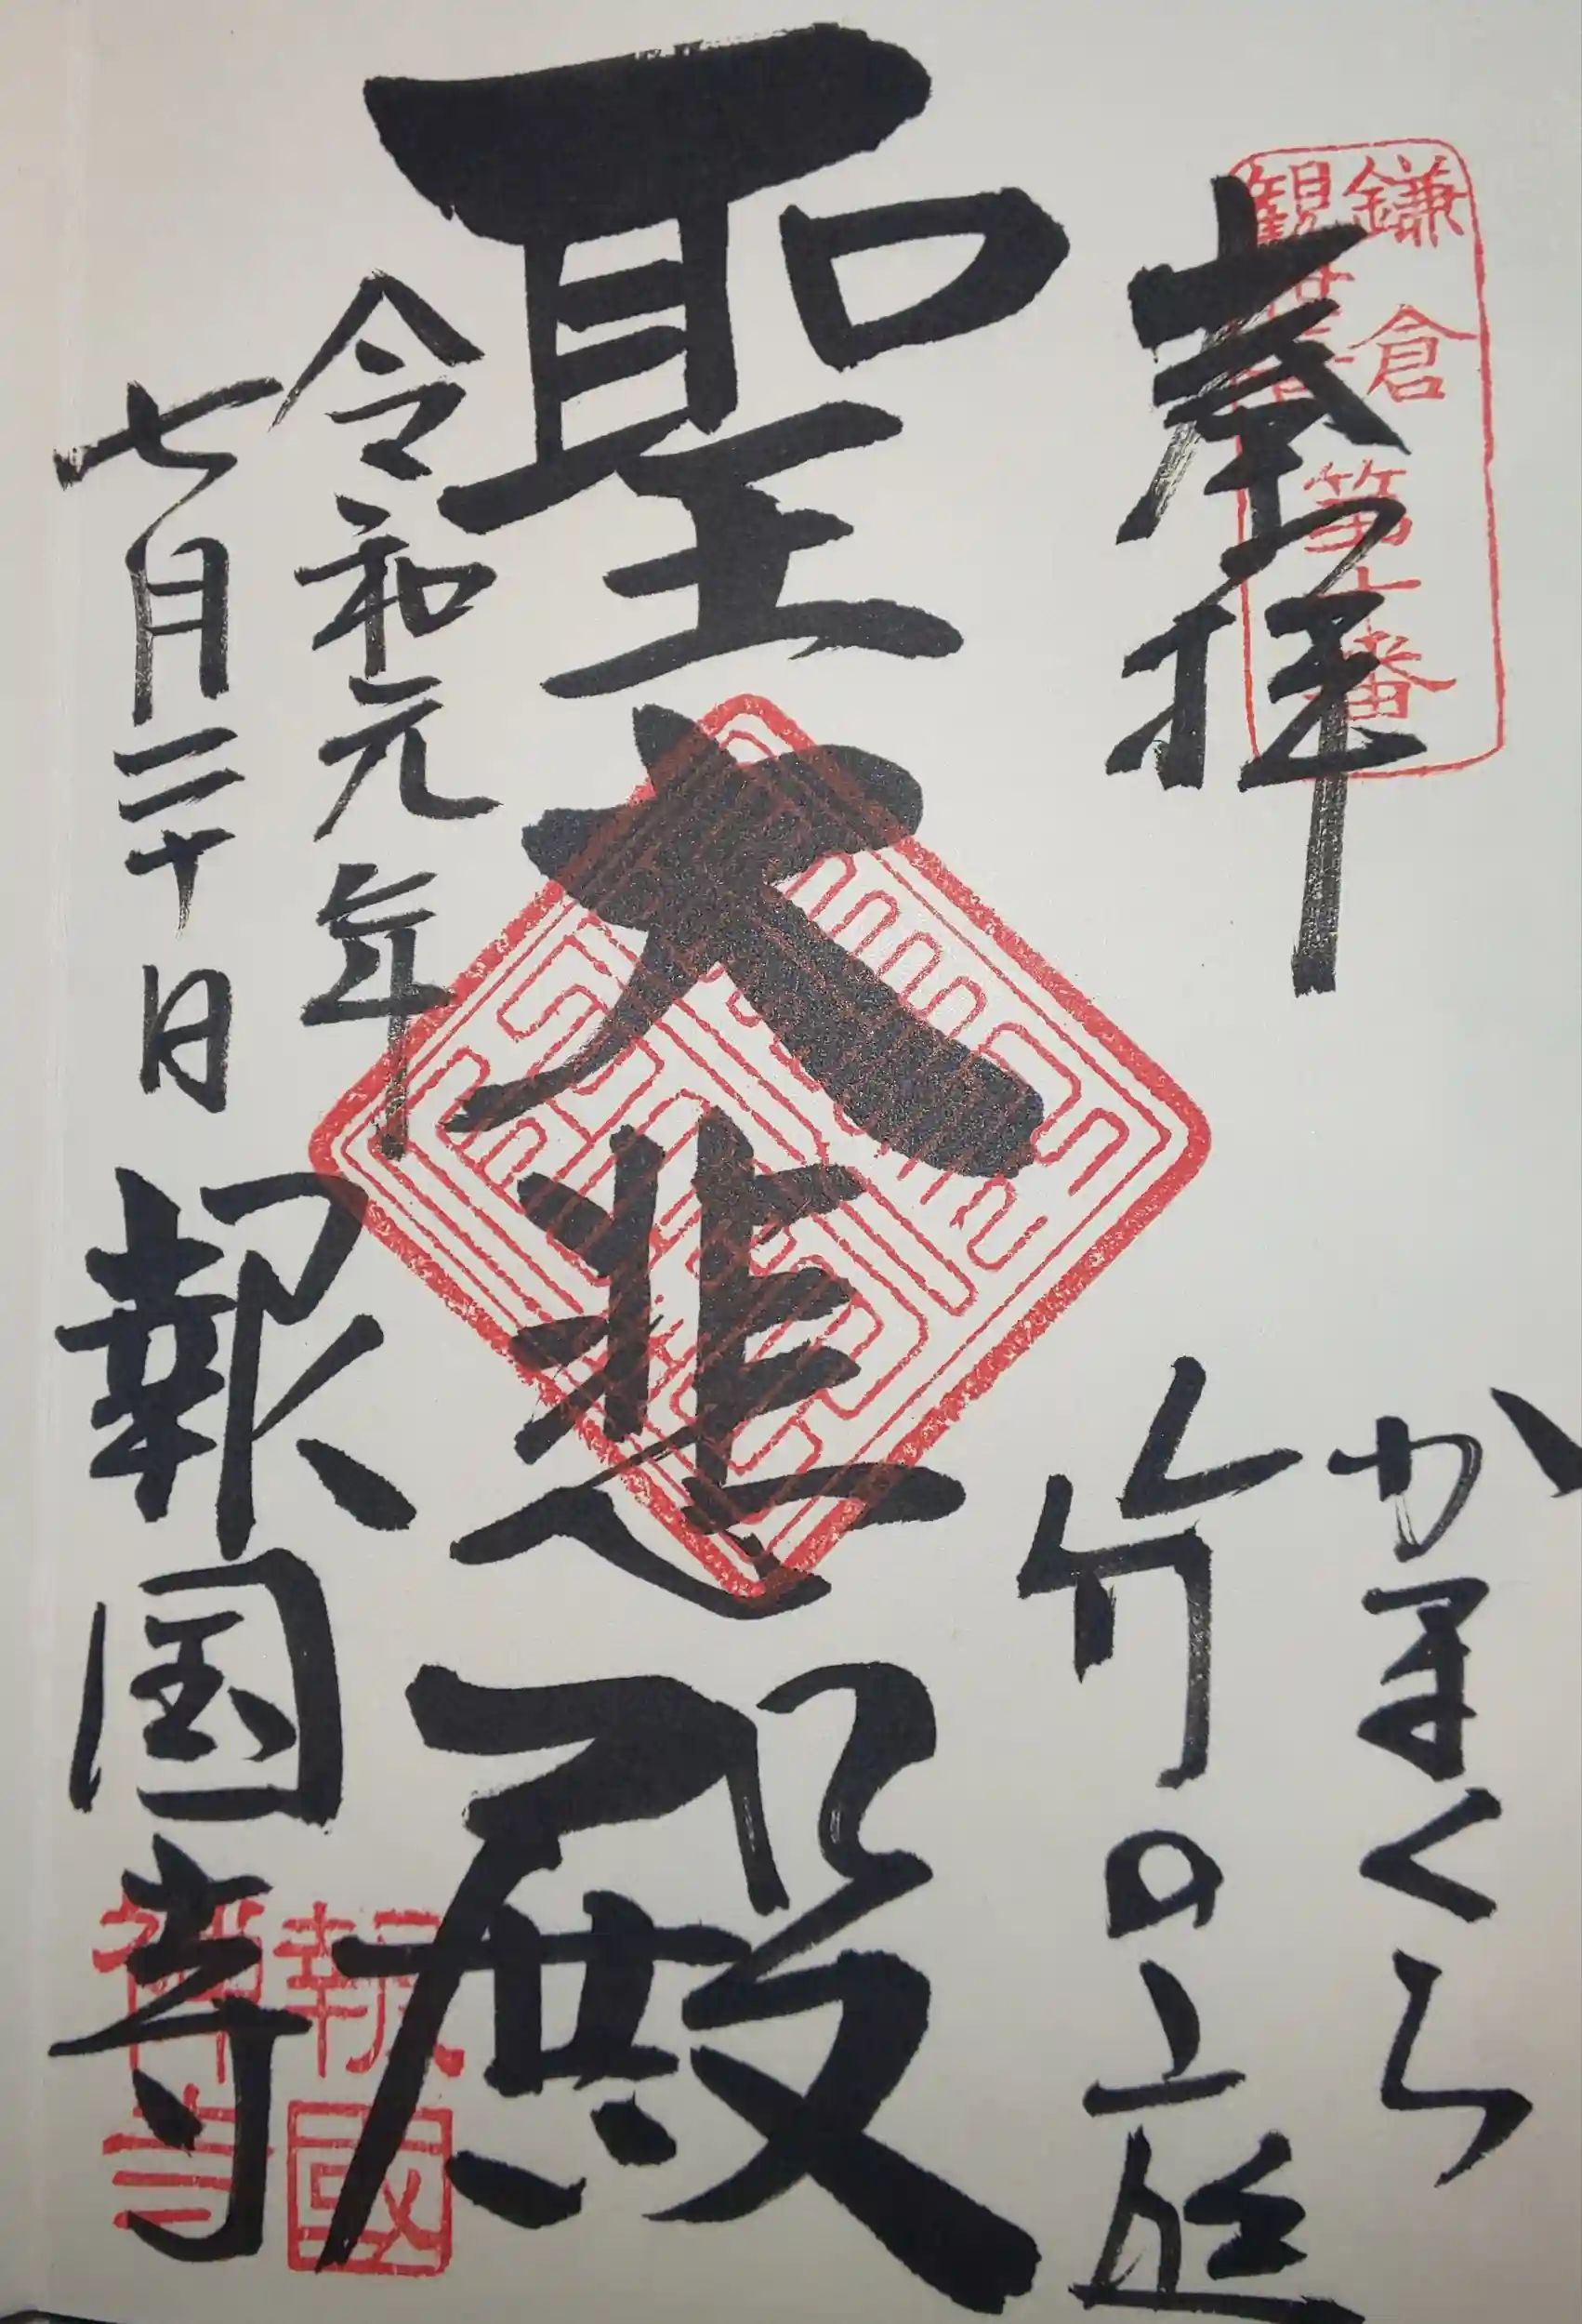 鎌倉
観世音
第十番
奉拝
かまくら
竹の上庭
聖大悲殿
令和元年
七月二十日
報国寺
報國
禅寺